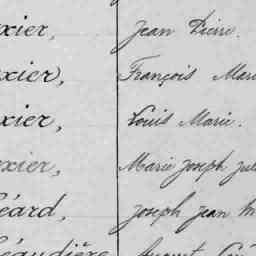 exier, Jean Pierre.
exier, François Marie
exier, Louis Marie.
exier, Marie Joseph Jule
éard, Joseph Jean M
éaudière